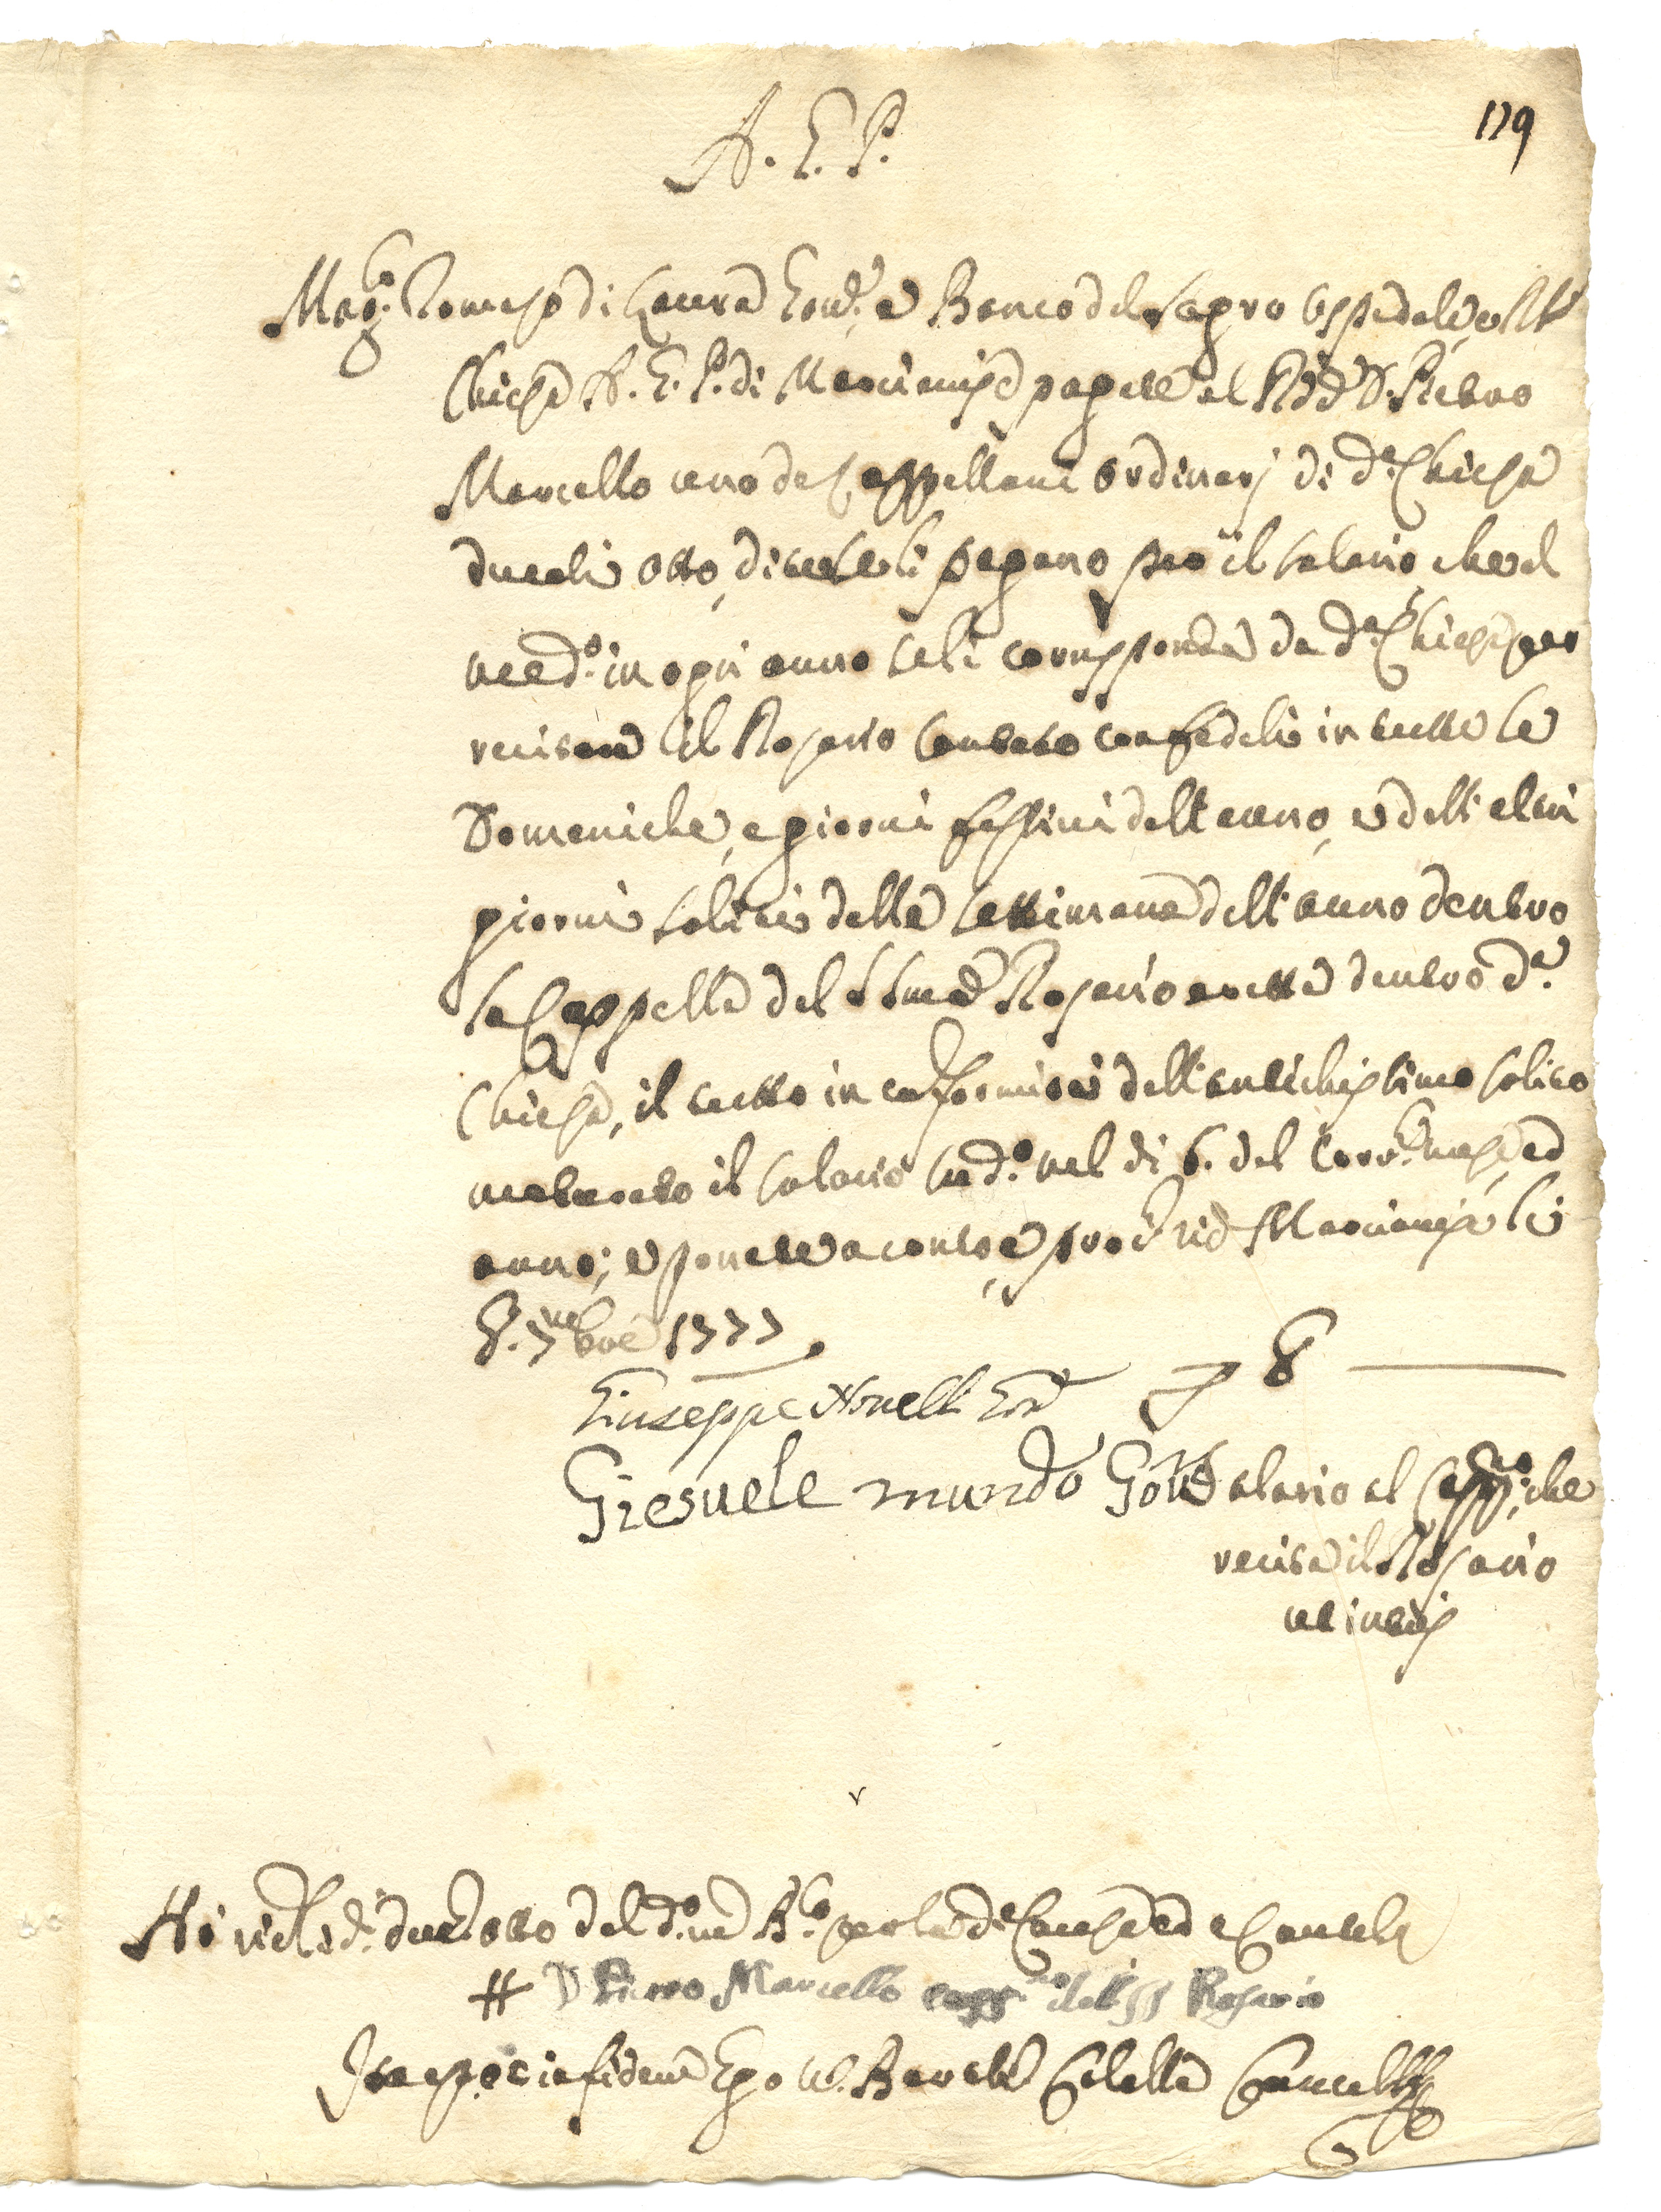 A. G. P.
179
Mag.co Tomaso di Laura Gov.re e Banco del Sagro Ospedale, e
Chiesa A. G. P. di Marcianise pagate al R.do D. Pietro
Marcello uno de Cappellani ordinarj di d.a Chiesa
ducati otto, diteli si pagano per il salario, che al
med.o in ogni anno seli corrisponde da d.a Chiesa per
recitare il Rosario cantato con fedeli in tutte le
Domeniche, e giorni festivi dell'anno, e delli altri
giorni soliti della settimana dell'anno dentro
la Cappella del SSmo Rosario eretta dentro d.a
Chiesa, il tutto in conformità dell'antichissimo solito
maturato il salario sud.o nel dì 6. del corr.e mese, ed
anno; e ponete a conto, e Marcianise li
8. 9mbre 1777.
Giuseppe Novelli Gov.re
8
Giesuele mundo Gov.re
Salario al Capp.no che
recita il Rosario
ut intus
Hò ric.ti li d.i duc. otto dal d.o m.co B.co per la d.a Causa, ed e Cautela
D Pietro Marcello capp.no del SS Rosario
Ita est, et in fidem Ego U. Bart. Cancell.